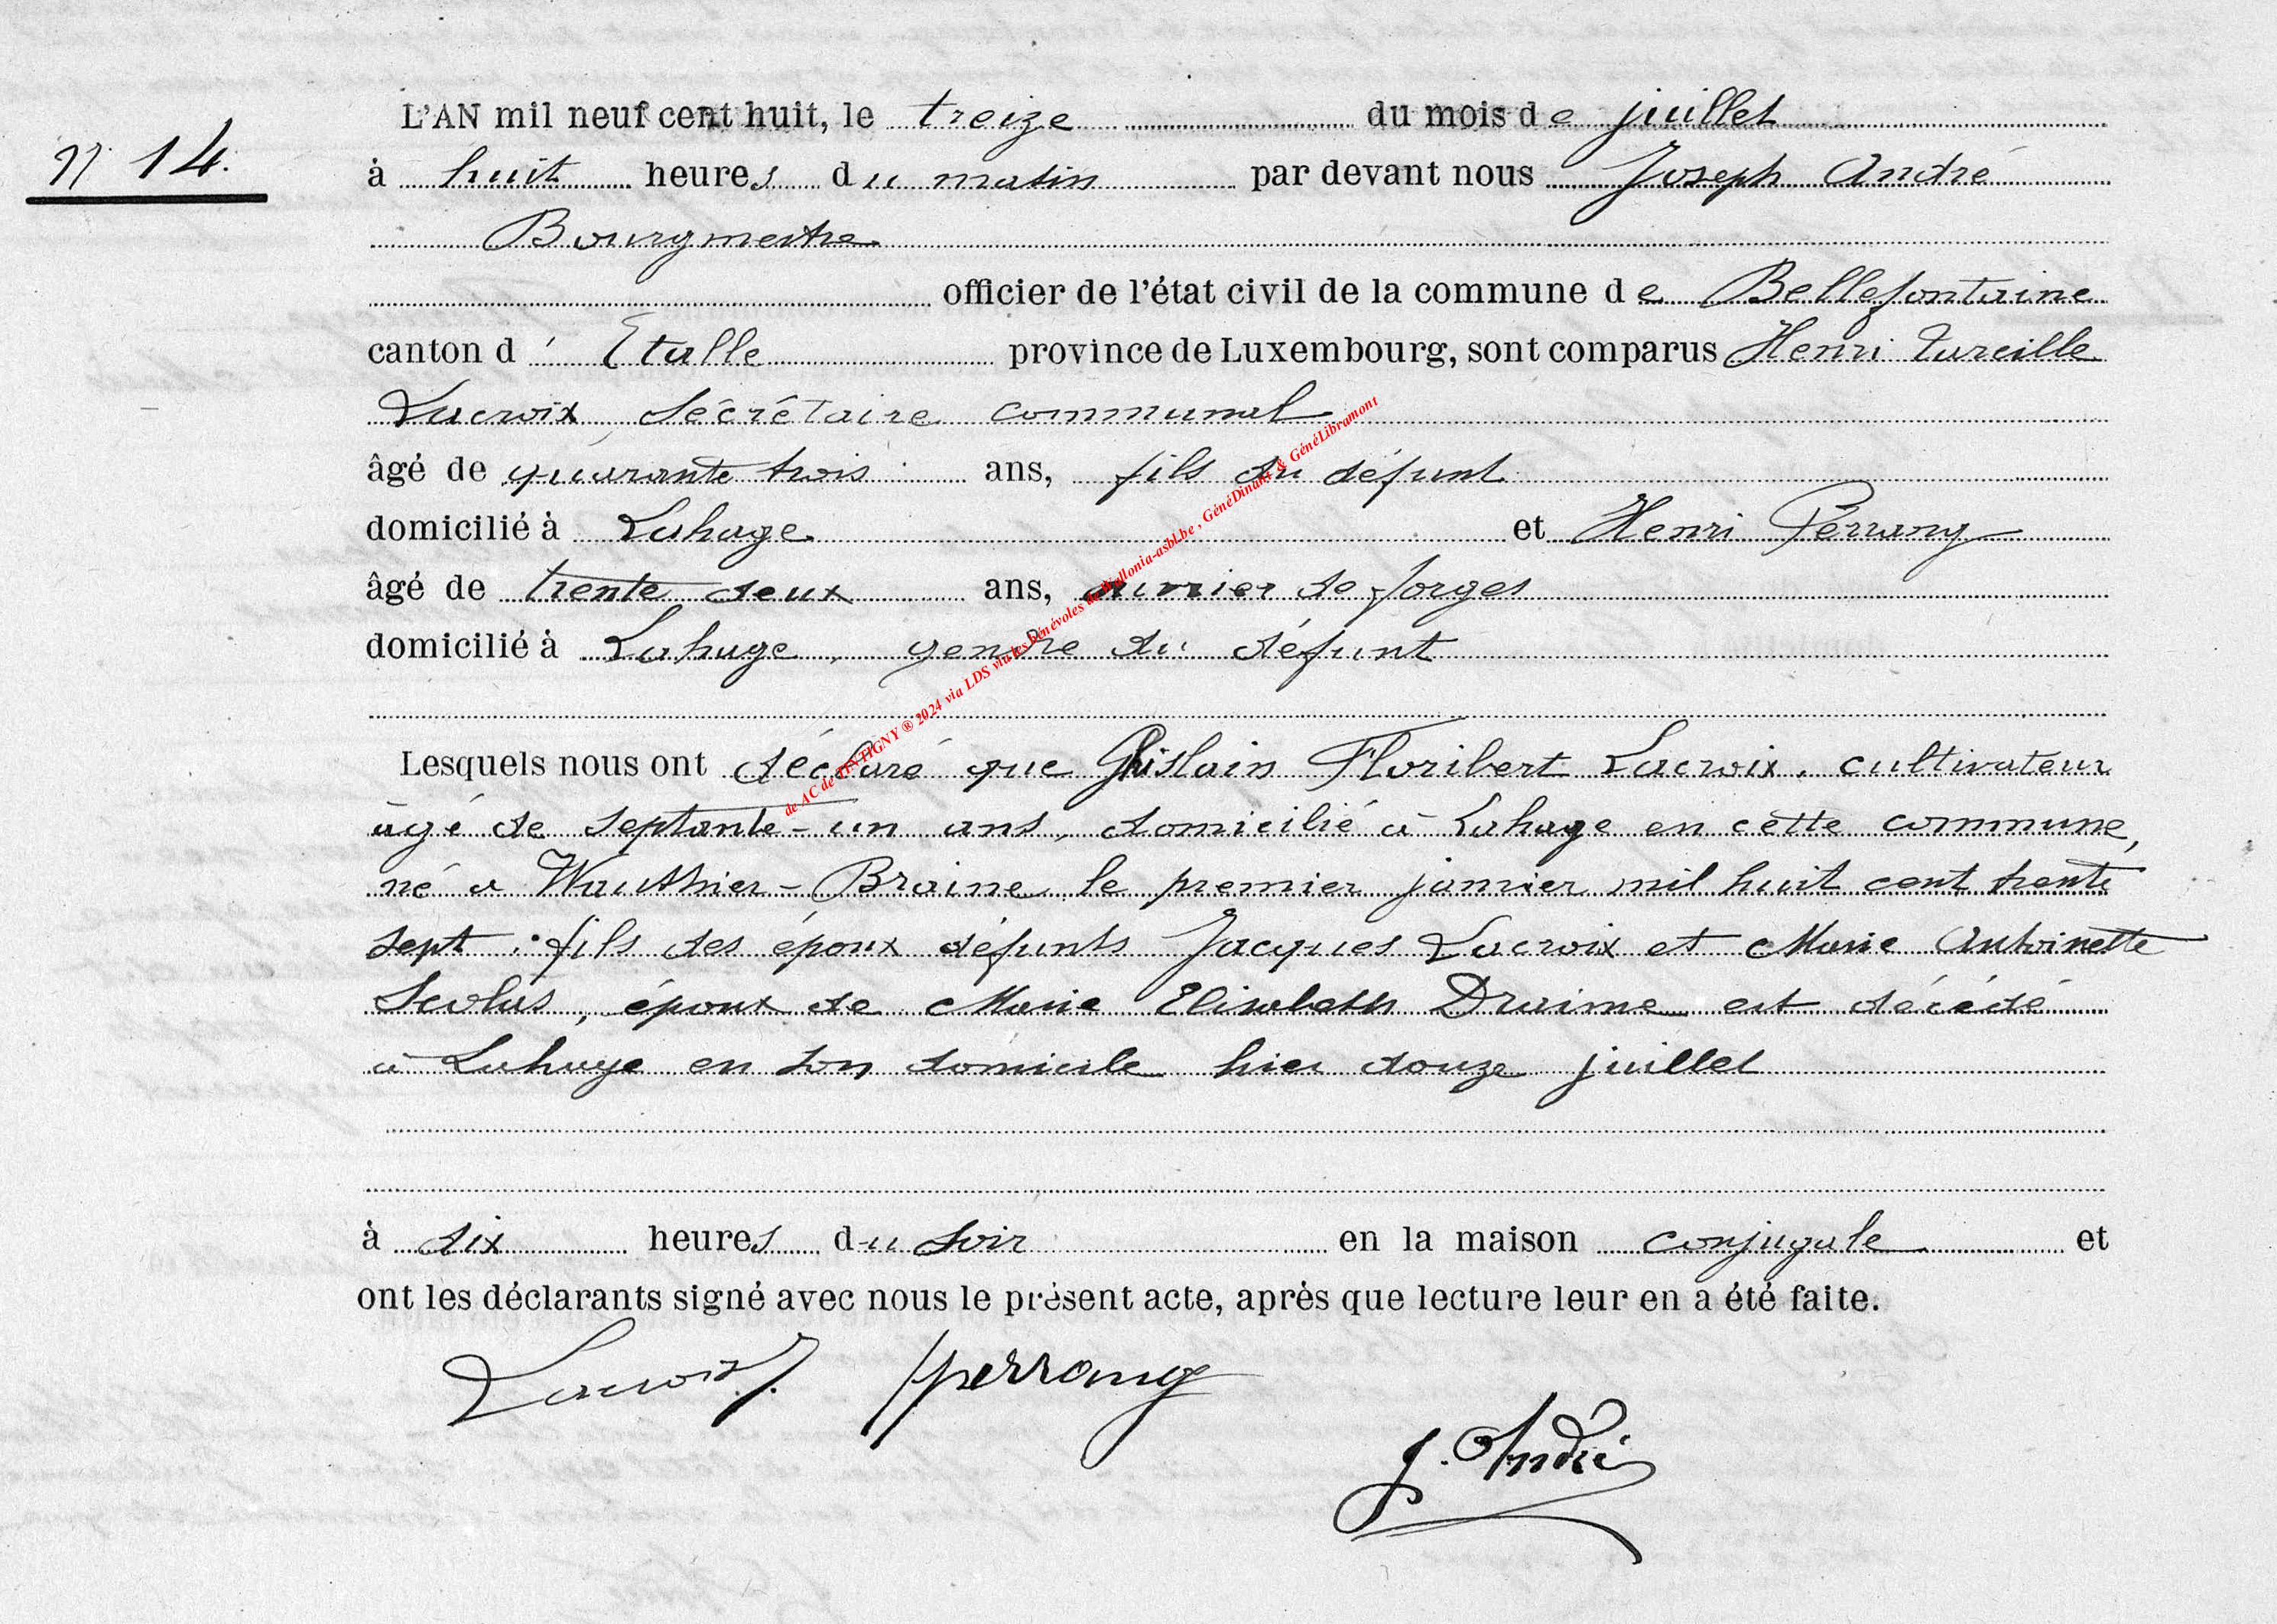 L'AN mil neuf cent huit, le treize du mois de juillet
N° 14.
à huit heures du matin par devant nous Joseph André
Bourgmestre
officier de l'état civil de la commune de Bellefontaine
canton d'Etalle province de Luxembourg, sont comparus Henri
Lacroix, sécrétaire communal
âgé de quarante trois ans, fils du défunt
domicilié à Lahage et Henri Perrang
âgé de trente deux ans, ouvrier de forges
domicilié à Lahage, gendre du défunt
Lesquels nous ont déclaré que Ghislain Floribert Lacroix, cultivateur
âgé de septante-un ans, domicilié à Lahage en cette commune,
né à Wauthier-Braine le premier janvier mil huit cent trente
sept, fils des époux défunts Jacques Lacroix et Marie Antoinette
époux de Marie Elisabeth Draime est décédé
à Lahage en son domicile hier douze juillet
à six heures du soir en la maison conjugale et
ont les déclarants signé avec nous le présent acte, après que lecture leur en a été faite.
Lacroix HPerrang
J. André
de AC de TINTIGNY ® 2024 via LDS via les bénévoles de Wallonia-asbl.be , GénéDinant & GénéLibramont